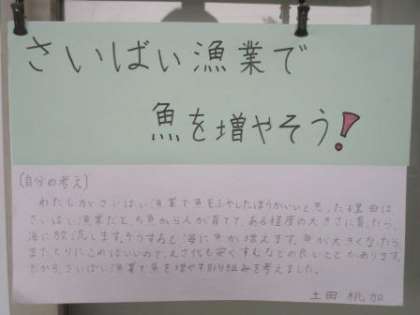 さいばい漁業で
魚を増やそう!
(自分の考え)
わたしがさいばい漁業で魚をふやしたほうがいいと思った理由は
さいばい漁業だと、ち魚から人が育てて、ある程度の大きさに育ったら、
海に放流します。そうすると海に魚が増えます。魚が大きくなったら
またとりにこればいいので、えさ代も安くすんなどの良いこともあります。
だから、さいばい漁業で魚を増やす取り組みを考えました。
土田 桃加